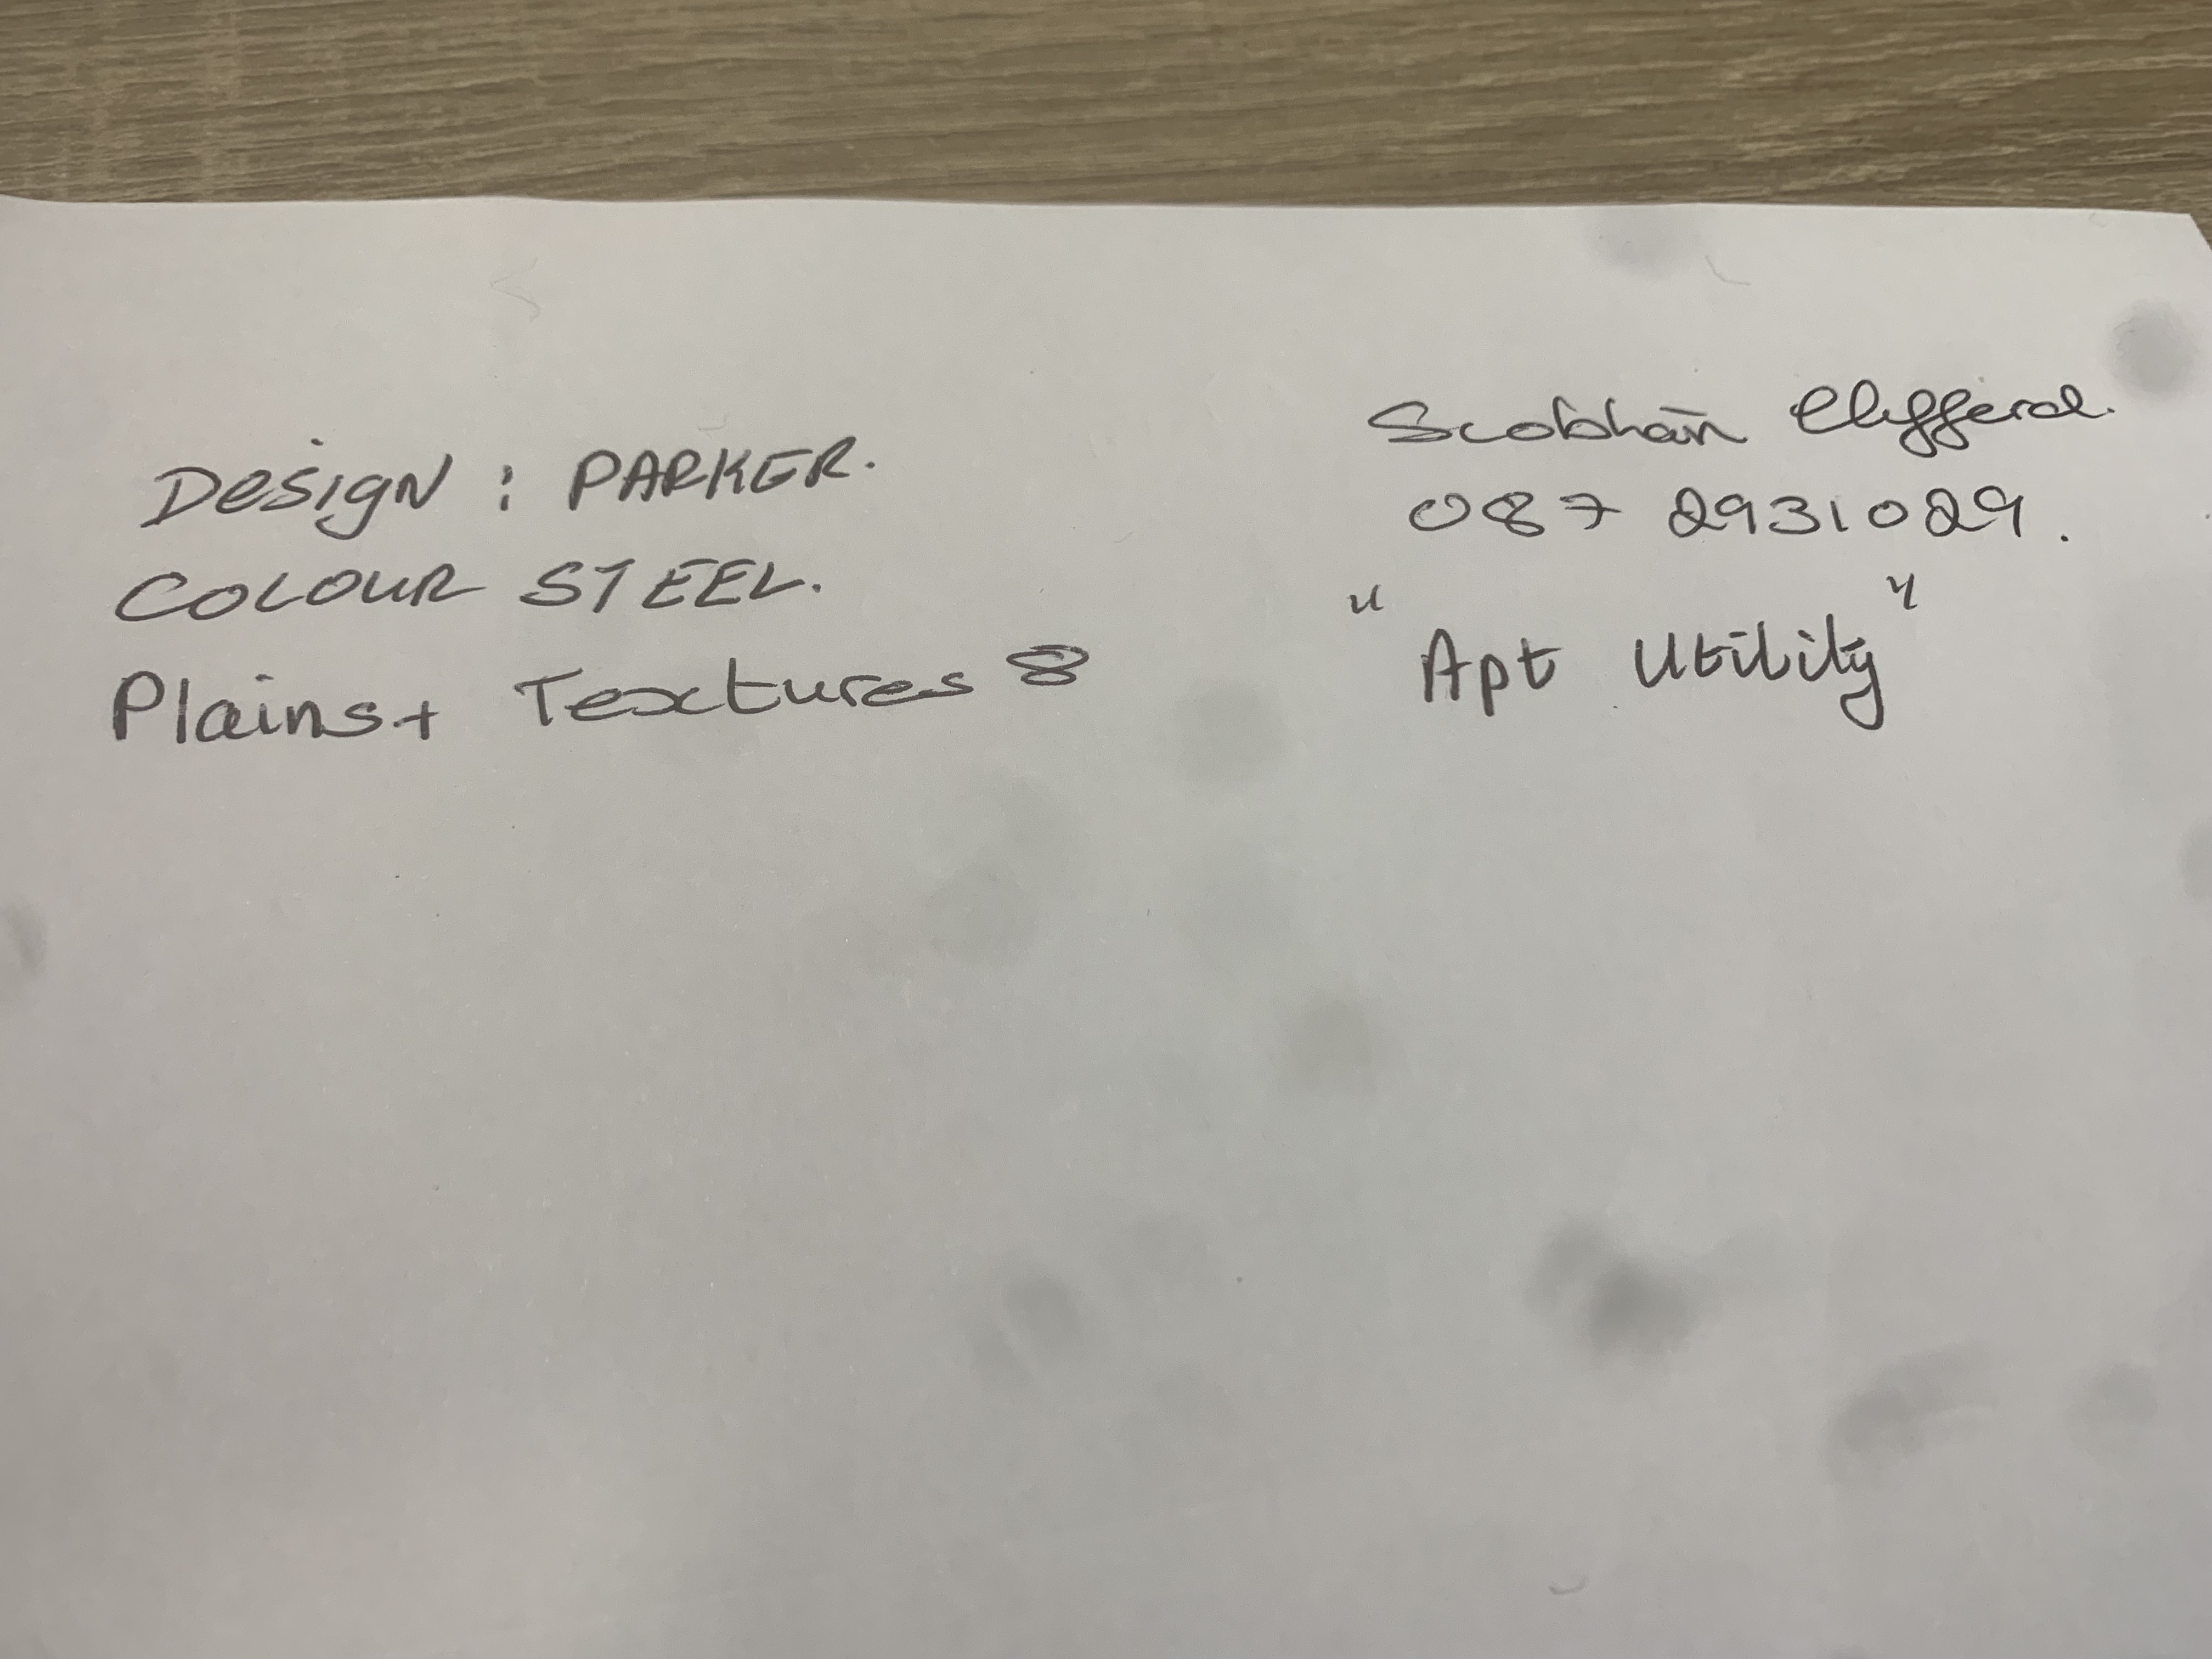 DESIGN : PARKER.
COLOUR STEEL.
Plains + Textures 8
Siobhán Clifford.
087 2931029.
"Apt Utility"